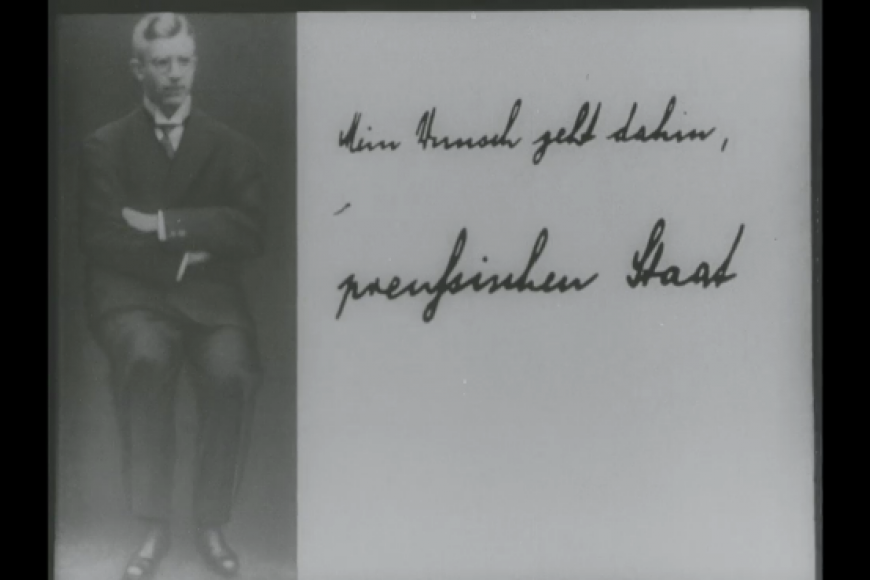 Mein Wunsch geht dahin,
preußischen Staat